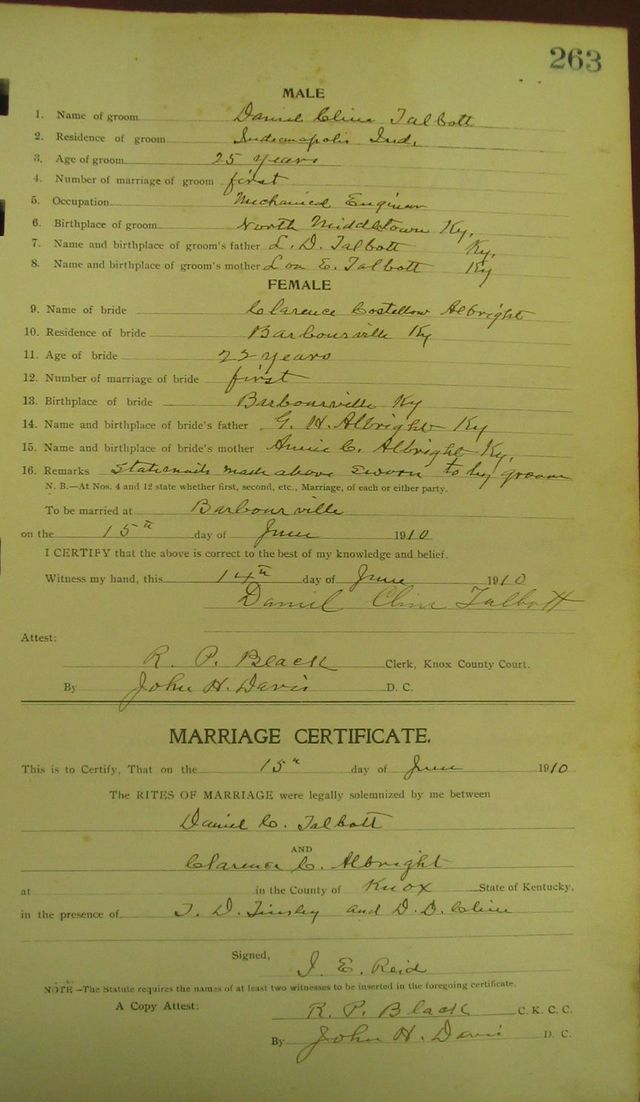 263
MALE
1. Name of groom Daniel Cline Talbott
2. Residence of groom Indianapolis Ind.
3. Age of groom 25 years
4. Number of marriage of groom first
5. Occupation Mechanical Engineer
6. Birthplace of groom North Middletown Ky.
7. Name and birthplace of groom's father L. D. Talbott Ky.
8. Name and birthplace of groom's mother Lou E. Talbott Ky
FEMALE
9. Name of bride Clarence Costellow Albright
10. Residence of bride Barbourville Ky
11. Age of bride 22 years
12. Number of marriage of bride first
13. Birthplace of bride Barbourville Ky
14. Name and birthplace of bride's father G. H. Albright Ky
15. Name and birthplace of bride's mother Annie C. Albright Ky.
16. Remarks Statements made above sworn to by groom
N. B.—At Nos. 4 and 12 state whether first, second, etc., Marriage, of each or either party.
To be married at Barbourville
on the 15th day of June 1910
I CERTIFY that the above is correct to the best of my knowledge and belief.
Witness my hand, this 14th day of June 1910
Daniel Cline Talbott
Attest:
R. P. Black Clerk, Knox County Court.
By John H. Davis D. C.
MARRIAGE CERTIFICATE.
This is to Certify, That on the 15th day of June 1910
The RITES OF MARRIAGE were legally solemnized by me between
Daniel C. Talbott
AND
Clarence C. Albright
at in the County of Knox State of Kentucky,
in the presence of T. D. Tinsley and D. D. Cline
Signed,
J. E. Reid
NOTE—The Statute requires the names of at least two witnesses to be inserted in the foregoing certificate.
A Copy Attest: R. P. Black C. K. C. C.
By John H. Davis D. C.